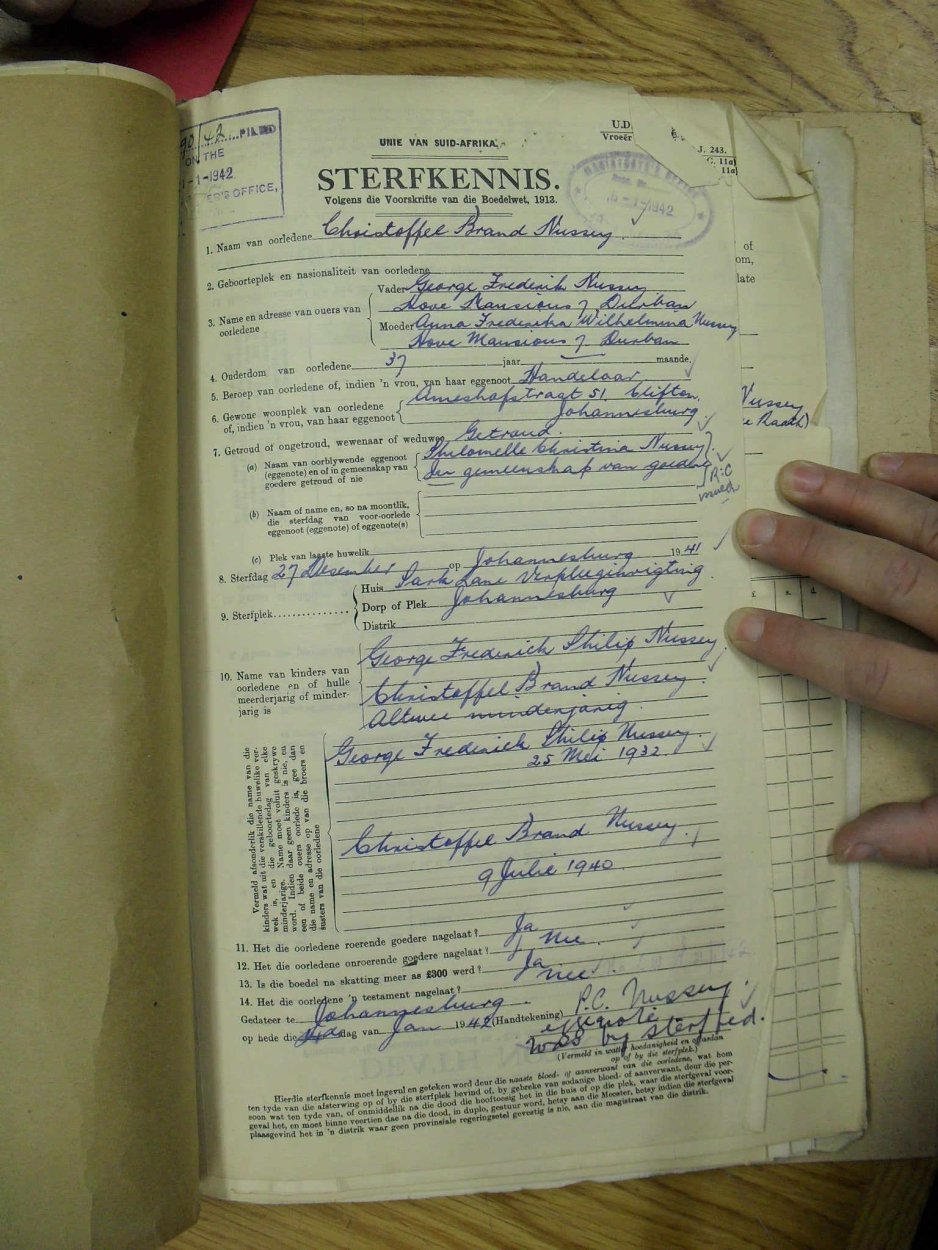 42 FILED
ON THE
-1-1942
ER'S OFFICE,
U.D.
Vroeër
J. 243.
C. 11a
11a
UNIE VAN SUID-AFRIKA.
STERFKENNIS.
Volgens die Voorskrifte van die Boedelwet, 1913.
MAGISTRATE'S
-1-1942
1. Naam van oorledene Christoffel Brand Nussey
2. Geboorteplek en nasionaliteit van oorledene
3. Name en adresse van ouers van oorledene
Vader George Frederik Nussey
Hove Mansions 7 Durban
Moeder Anna Frederika Wilhelmina Nussey
Hove Mansions 7 Durban
4. Ouderdom van oorledene 37 jaar — maande,
5. Beroep van oorledene of, indien 'n vrou, van haar eggenoot Handelaar
6. Gewone woonplek van oorledene of, indien 'n vrou, van haar eggenoot
Ameshofstraat 51, Clifton,
Johannesburg
7. Getroud of ongetroud, wewenaar of weduwee Getroud.
(a) Naam van oorblywende eggenoot
(eggenote) en of in gemeenskap van
goedere getroud of nie
Philomelle Christina Nussey
In gemeenskap van goedere
(b) Naam of name en, so na moontlik,
die sterfdag van voor-oorlede
eggenoot (eggenote) of eggenote(s)
(c) Plek van laaste huwelik
8. Sterfdag 27 Desember op Johannesburg 1941
9. Sterfplek
Huis Park Lane Verpleeginrigting
Dorp of Plek Johannesburg
Distrik
10. Name van kinders van
oorledene en of hulle
meerderjarig of minder-
jarig is
George Frederick Philip Nussey
Christoffel Brand Nussey.
Altwee minderjarig.
Vermeld afsonderlik die name van die
kinders wat uit die verskillende huwelike ver-
wek is, en die geboortedag van elke
minderjarige. Name moet voluit geskrywe
word. Indien daar geen kinders is nie, en
een of beide ouers oorlede is, gee dan
die name en adresse op van die broers en
susters van die oorledene
George Frederick Philip Nussey.
25 Mei 1932
Christoffel Brand Nussey.
9 Julie 1940
11. Het die oorledene roerende goedere nagelaat? Ja
12. Het die oorledene onroerende goedere nagelaat? nee.
13. Is die boedel na skatting meer as £300 werd? Ja
14. Het die oorledene 'n testament nagelaat? nee
Gedateer te Johannesburg
op hede die dag van Jan 1942 (Handtekening) P.C. Nussey.
eggenote
was by sterfbed.
(Vermeld in watter hoedanigheid en of aldan
op of by die sterfplek.)
Hierdie sterfkennis moet ingevul en geteken word deur die naaste bloed- of aanverwant van die oorledene, wat hom
ten tyde van die afsterwing op of by die sterfplek bevind of, by gebreke van sodanige bloed- of aanverwant, deur die per-
soon wat ten tyde van, of onmiddellik na die dood die hooftoesig het in die huis of op die plek, waar die sterfgeval voor-
geval het, en moet binne veertien dae na die dood, in duplo, gestuur word, hetsy aan die Meester, hetsy indien die sterfgeval
plaasgevind het in 'n distrik waar geen provinsiale regeringsetel gevestig is nie, aan die magistraat van die distrik.
of
om,
late
Nussey
Raath)